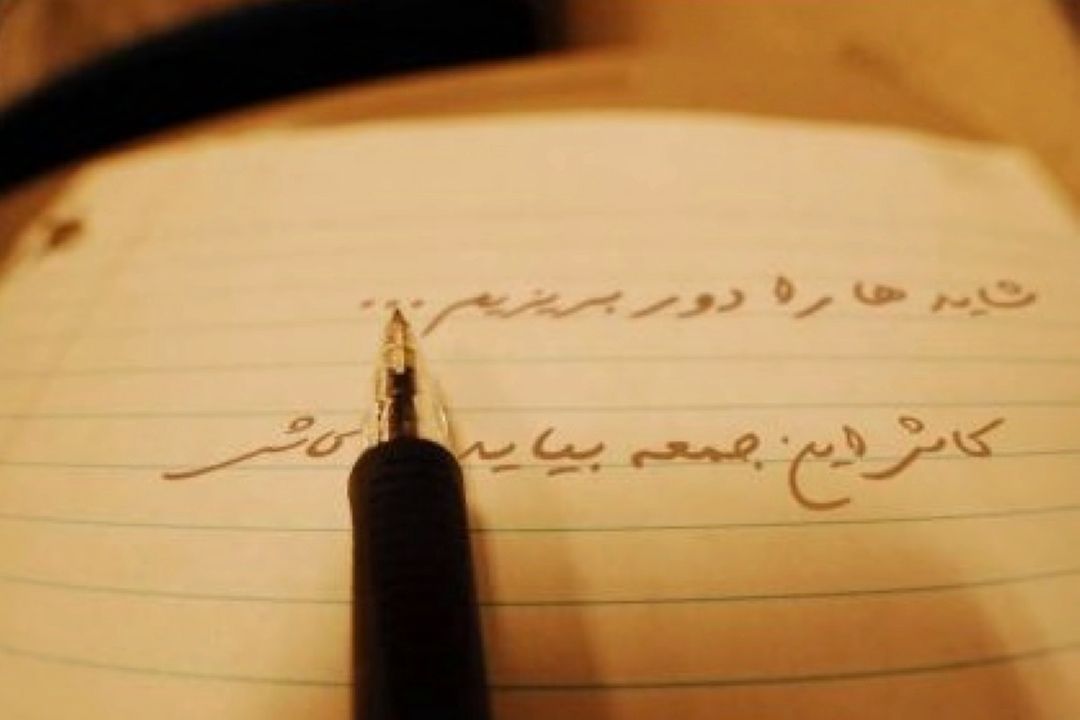 شاید ها را دور بریزیم ...
کاش این جمعه بیاید کاش